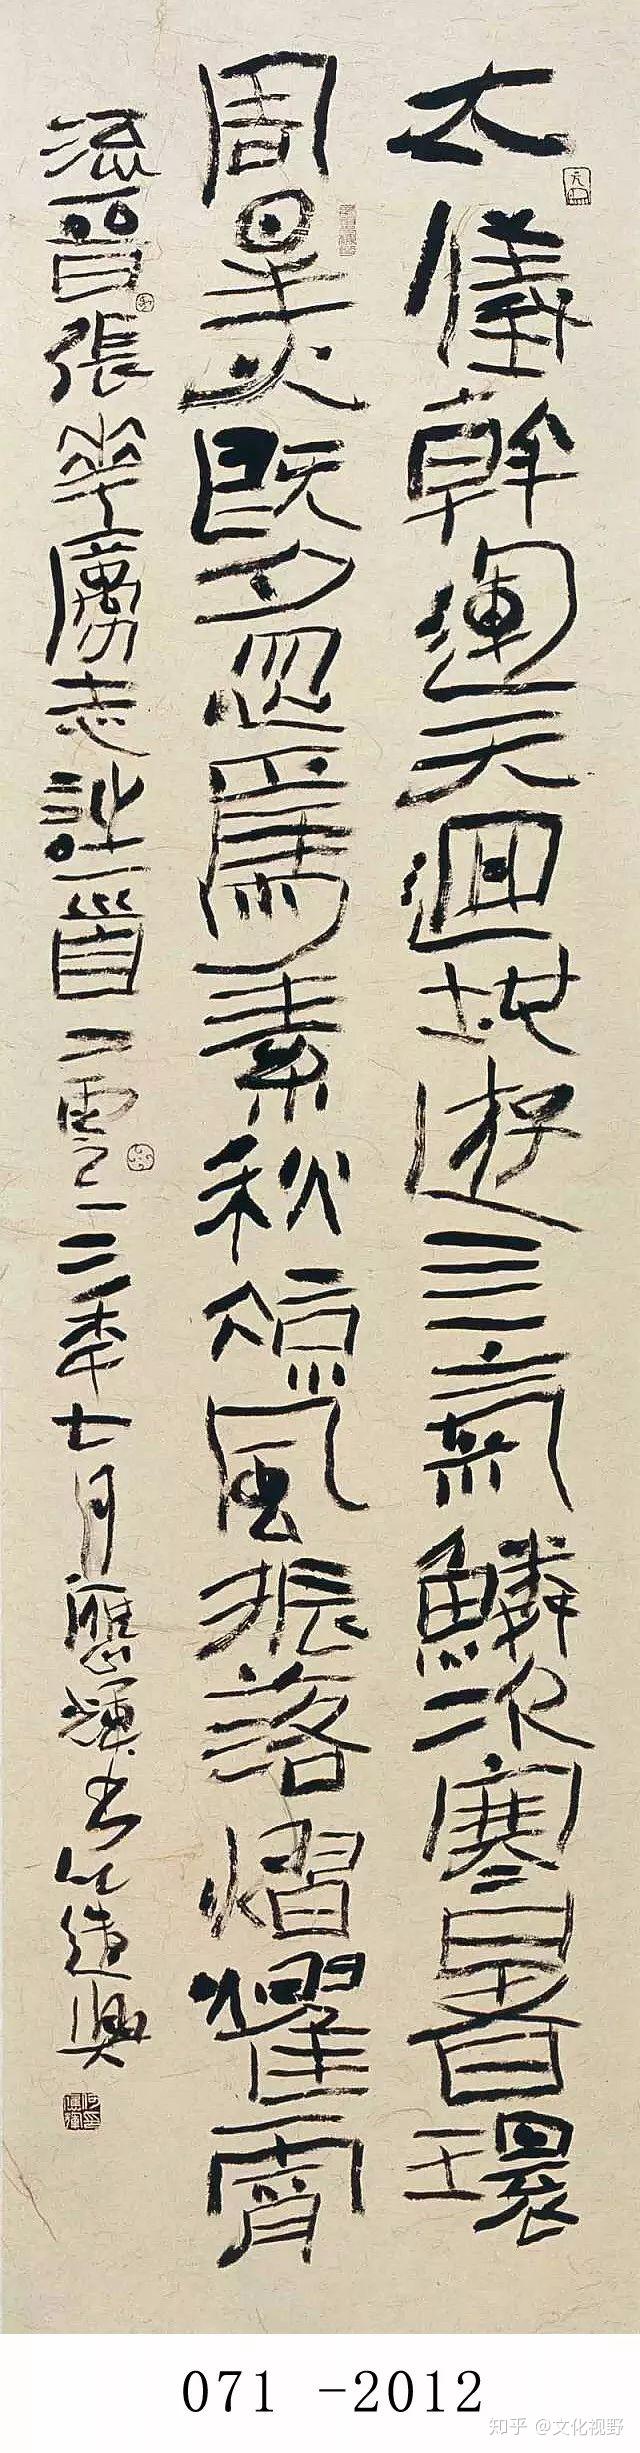 大儀斡運天迴地遊亖氣鱗次寒暑環
周星火既夕忽焉素秋涼風振落熠燿宵
流晉張華勵志詩一首二零一二年七月應輝書以遣興
071 -2012
知乎 @文化视野